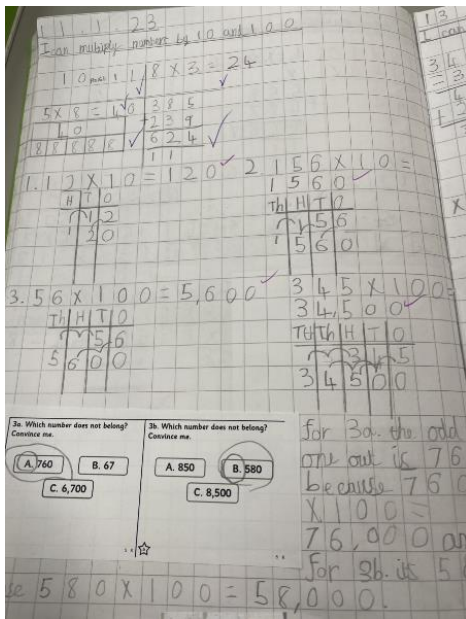 11.1.23
I can multiply numbers by 10 and 100
8 x 3 = 24
5 x 8 = 40
40
8 8 8 8 8
385
+ 239
624
1 1
1. 12 x 10 = 120
H T O
1 2
1 2 0
2 156 x 10 =
1560
Th H T O
1 5 6
1 5 6 0
3. 56 x 100 = 5,600
Th H T O
5 6
5 6 0 0
345 x 100 =
34,500
TTh Th H T O
3 4 5
3 4 5 0 0
3a. Which number does not belong?
Convince me.
A. 760
B. 67
C. 6,700
3b. Which number does not belong?
Convince me.
A. 850
B. 580
C. 8,500
for 3a. the odd
one out is 76
because 760
x 100 =
76,000
for 3b. its 5
580 x 100 = 58,000.
13
I can